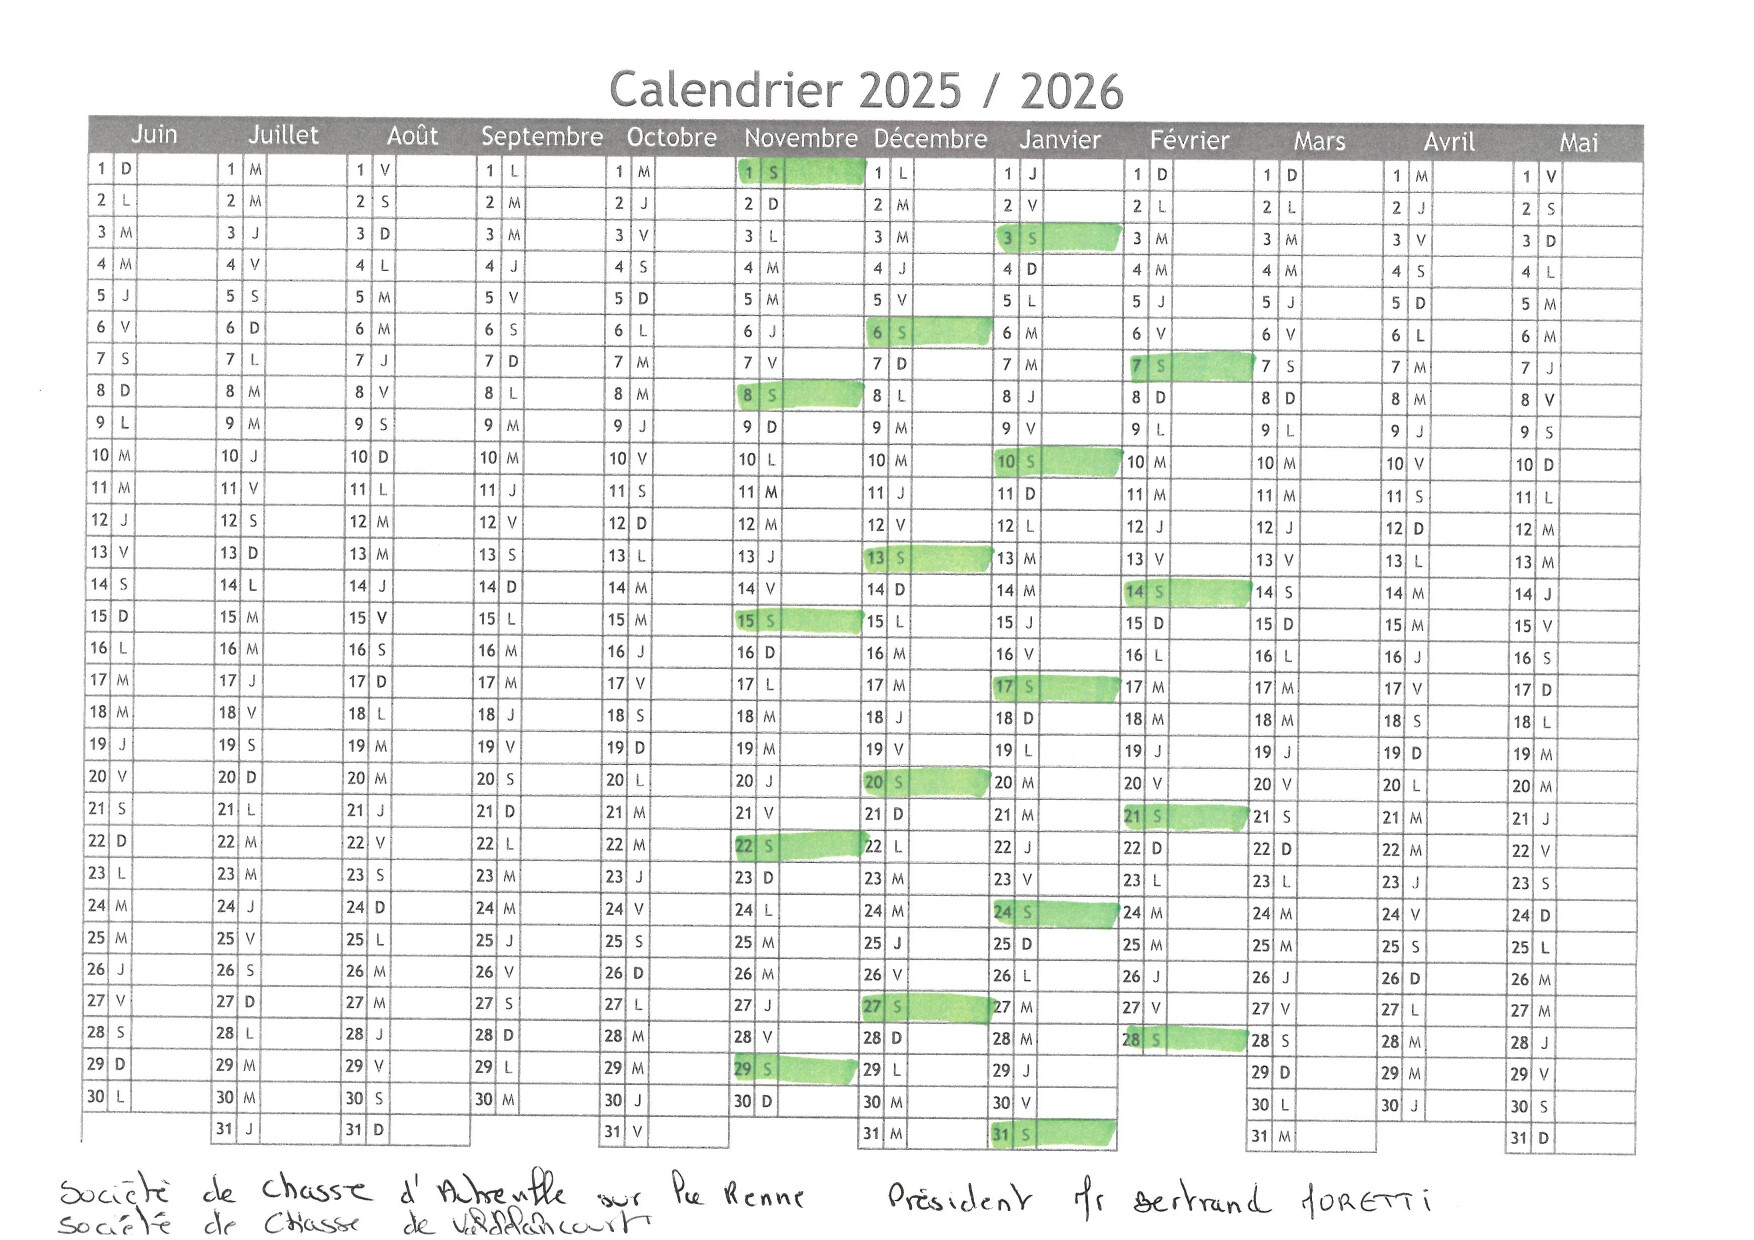 Calendrier 2025 / 2026
Juin Juillet Août Septembre Octobre Novembre Décembre Janvier Février Mars Avril Mai
1 D 1 M 1 V 1 L 1 M 1 S 1 L 1 J 1 D 1 D 1 M 1 V
2 L 2 M 2 S 2 M 2 J 2 D 2 M 2 V 2 L 2 L 2 J 2 S
3 M 3 J 3 D 3 M 3 V 3 L 3 M 3 S 3 M 3 M 3 V 3 D
4 M 4 V 4 L 4 J 4 S 4 M 4 J 4 D 4 M 4 M 4 S 4 L
5 J 5 S 5 M 5 V 5 D 5 M 5 V 5 L 5 J 5 J 5 D 5 M
6 V 6 D 6 M 6 S 6 L 6 J 6 S 6 M 6 V 6 V 6 L 6 M
7 S 7 L 7 J 7 D 7 M 7 V 7 D 7 M 7 S 7 S 7 M 7 J
8 D 8 M 8 V 8 L 8 M 8 S 8 L 8 J 8 D 8 D 8 M 8 V
9 L 9 M 9 S 9 M 9 J 9 D 9 M 9 V 9 L 9 L 9 J 9 S
10 M 10 J 10 D 10 M 10 V 10 L 10 M 10 S 10 M 10 M 10 V 10 D
11 M 11 V 11 L 11 J 11 S 11 M 11 J 11 D 11 M 11 M 11 S 11 L
12 J 12 S 12 M 12 V 12 D 12 M 12 V 12 L 12 J 12 J 12 D 12 M
13 V 13 D 13 M 13 S 13 L 13 J 13 S 13 M 13 V 13 V 13 L 13 M
14 S 14 L 14 J 14 D 14 M 14 V 14 D 14 M 14 S 14 S 14 M 14 J
15 D 15 M 15 V 15 L 15 M 15 S 15 L 15 J 15 D 15 D 15 M 15 V
16 L 16 M 16 S 16 M 16 J 16 D 16 M 16 V 16 L 16 L 16 J 16 S
17 M 17 J 17 D 17 M 17 V 17 L 17 M 17 S 17 M 17 M 17 V 17 D
18 M 18 V 18 L 18 J 18 S 18 M 18 J 18 D 18 M 18 M 18 S 18 L
19 J 19 S 19 M 19 V 19 D 19 M 19 V 19 L 19 J 19 J 19 D 19 M
20 V 20 D 20 M 20 S 20 L 20 J 20 S 20 M 20 V 20 V 20 L 20 M
21 S 21 L 21 J 21 D 21 M 21 V 21 D 21 M 21 S 21 S 21 M 21 J
22 D 22 M 22 V 22 L 22 M 22 S 22 L 22 J 22 D 22 D 22 M 22 V
23 L 23 M 23 S 23 M 23 J 23 D 23 M 23 V 23 L 23 L 23 J 23 S
24 M 24 J 24 D 24 M 24 V 24 L 24 M 24 S 24 M 24 M 24 V 24 D
25 M 25 V 25 L 25 J 25 S 25 M 25 J 25 D 25 M 25 M 25 S 25 L
26 J 26 S 26 M 26 V 26 D 26 M 26 V 26 L 26 J 26 J 26 D 26 M
27 V 27 D 27 M 27 S 27 L 27 J 27 S 27 M 27 V 27 V 27 L 27 M
28 S 28 L 28 J 28 D 28 M 28 V 28 D 28 M 28 S 28 S 28 M 28 J
29 D 29 M 29 V 29 L 29 M 29 S 29 L 29 J 29 D 29 M 29 V
30 L 30 M 30 S 30 M 30 J 30 D 30 M 30 V 30 L 30 J 30 S
31 J 31 D 31 V 31 M 31 S 31 M 31 D
Société de Chasse d'Autreville sur la Renne Président Mr Bertrand MORETTI
Société de Chasse de